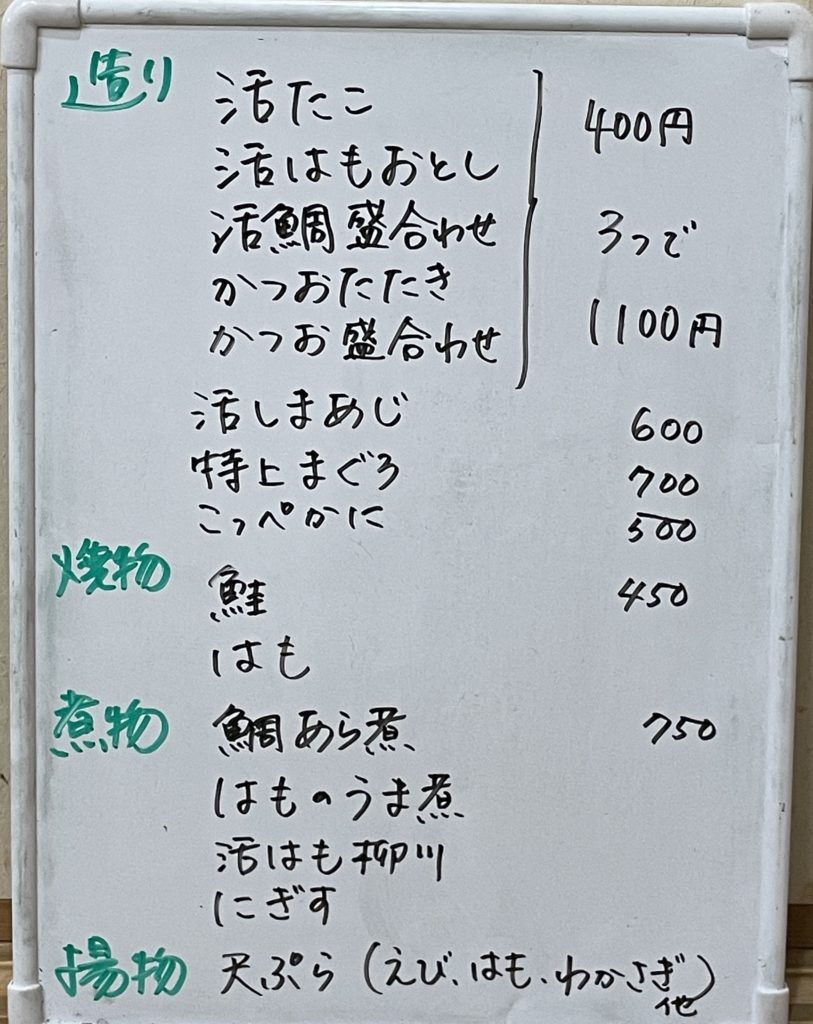 造り 活たこ 400円
活はもおとし
活鯛盛合わせ 3つで
かつおたたき
かつお盛合わせ 1100円
活しまあじ 600
特上まぐろ 700
こっぺかに 500
焼物 鮭 450
はも
煮物 鯛あら煮 750
はものうま煮
活はも柳川
にぎす
揚物 天ぷら(えび、はも、わかさぎ)
他